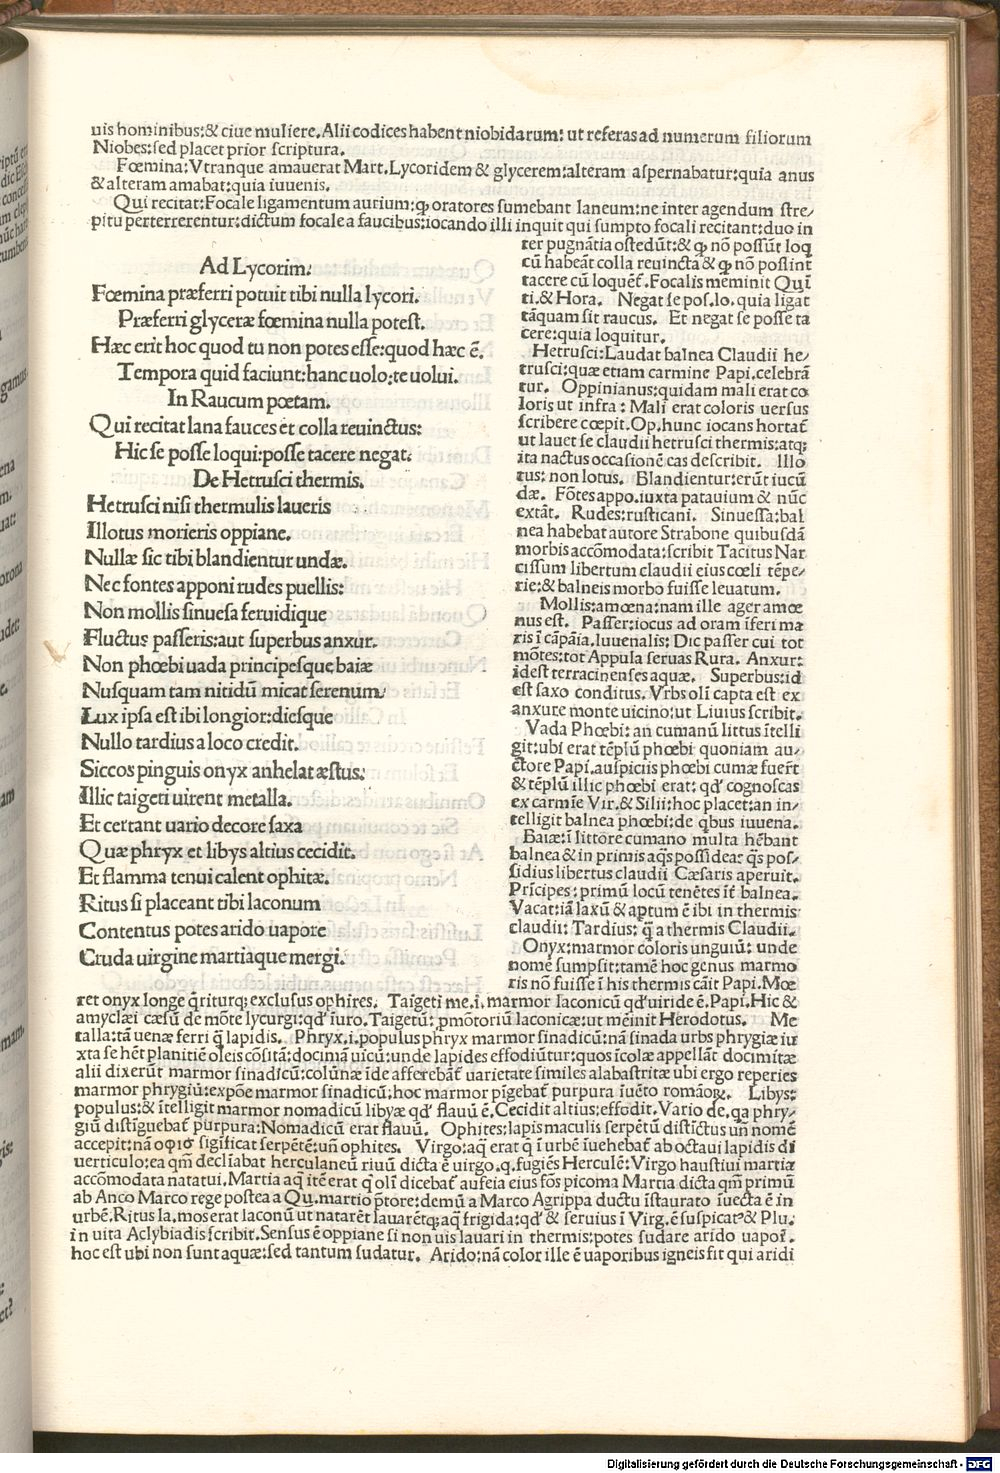 uis hominibus:& ciue muliere. Alii codices habent niobidarum: ut referas ad numerum filiorum
Niobes: sed placet prior scriptura.
Fœmina: Vtranque amauerat Mart. Lycoridem & glycerem: alteram aspernabatur: quia anus
& alteram amabat: quia iuuenis.
Qui recitat: Focale ligamentum aurium: ꝙ oratores sumebant laneum: ne inter agendum stre/
pitu perterrerentur: dictum focale a faucibus: iocando illi inquit qui sumpto focali recitant: duo in
Ad Lycorim.
Fœmina præferri potuit tibi nulla lycori.
Præferri glyceræ fœmina nulla potest.
Hæc erit hoc quod tu non potes esse: quod hæc ē.
Tempora quid faciunt: hanc uolo: te uolui.
In Raucum poetam.
Qui recitat lana fauces et colla reuinctus:
Hic se posse loqui: posse tacere negat.
De Hetrusci thermis.
Hetrusci nisi thermulis laueris
Illotus morieris oppiane.
Nullæ sic tibi blandientur undæ.
Nec fontes apponi rudes puellis:
Non mollis sinuesa feruidique
Fluctus passeris: aut superbus anxur.
Non phœbi uada principesque baiæ
Nusquam tam nitidū micat serenum.
Lux ipsa est ibi longior: diesque
Nullo tardius a loco credit.
Siccos pinguis onyx anhelat æstus:
Illic taigeti uirent metalla.
Et certant uario decore saxa
Quæ phryx et libys altius cecidit.
Et flamma tenui calent ophitæ.
Ritus si placeant tibi laconum
Contentus potes arido uapore
Cruda uirgine martiaque mergi.
ter pugnātia ostedūt: & ꝙ nō possūt loq
cū habeāt colla reuincta & ꝙ nō possint
tacere cū loquēt̄. Focalis meminit Qui
ti. & Hora. Negat se pos. lo. quia ligat
tāquam sit raucus. Et negat se posse ta
cere: quia loquitur.
Hetrusci: Laudat balnea Claudii he/
trusci: quæ etiam carmine Papi. celebrā
tur. Oppinianus: quidam mali erat co
loris ut infra: Mali erat coloris uersus
scribere cœpit. Op. hunc iocans hortat̄
ut lauet se claudii hetrusci thermis: atq;
ita nactus occasionē eas describit. Illo
tus: non lotus. Blandientur: erūt iucū
dæ. Fōtes appo. iuxta patauium & nūc
extāt. Rudes: rusticani. Sinuessa: bal
nea habebat autore Strabone quibusdā
morbis accōmodata: scribit Tacitus Nar
cissum libertum claudii eius cœli tēpe/
rie: & balneis morbo fuisse leuatum.
Mollis: amœna: nam ille ager amœ
nus est. Passer: iocus ad oram īferi ma
ris ī cāpāia. Iuuenalis: Dic passer cui tot
mōtes: tot Appula seruas Rura. Anxur:
idest terracinenses aquæ. Superbus: id
est saxo conditus. Vrbs olī capta est ex
anxure monte uicino: ut Liuius scribit.
Vada Phœbi: an cumanū littus ītelli
git: ubi erat tēplū phœbi quoniam au/
ctore Papi. auspiciis phœbi cumæ fuer̄t
& tēplū illic phœbi erat: qd' cognoscas
ex carmīe Vir. & Silii: hoc placet: an in/
telligit balnea phœbi: de qbus iuuena.
Baiæ: ī littore cumano multa hēbant
balnea & in primis aq̄s possidea: q̄s pos/
sidius libertus claudii Cæsaris aperuit.
Prīcipes: primū locū tenētes īt̄ balnea.
Vacat: iā laxū & aptum ē ibi in thermis
claudii: Tardius: q̄ a thermis Claudii.
Onyx: marmor coloris unguiū: unde
nomē sumpsit: tamē hoc genus marmo
ris nō fuisse ī his thermis cāit Papi. Mœ
ret onyx longe q̄riturq; exclusus ophites. Taigeti me. i. marmor laconicū qd' uiride ē. Papi. Hic &
amyclæi cæsū de mōte lycurgi: qd' iuro. Taigetū: ꝓmōtoriū laconicæ: ut mēinit Herodotus. Me
talla: tā uenæ ferri q̄ lapidis. Phryx. i. populus phryx marmor sinadicū: nā sinada urbs phrygiæ iu
xta se hēt planitiē oleis cōsitā: docimā uicū: unde lapides effodiūtur: quos īcolæ appellāt docimitæ
alii dixerūt marmor sinadicū: colūnæ īde afferebāt̄ uarietate similes alabastritæ ubi ergo reperies
marmor phrygiū: expōe marmor sinadicū: hoc marmor pīgebat̄ purpura iuēto romāoꝝ. Libys:
populus: & ītelligit marmor nomadicū libyæ qd' flauū ē. Cecidit altius: effodit. Vario de. qa phry/
giū distīguebat̄ purpura: Nomadicū erat flauū. Ophites: lapis maculis serpētū distīctus un̄ nomē
accepit: nā οφισ sigīficat serpētē: uā ophites. Virgo: aq̄ erat q̄ ī urbē iuehebat̄ ab octaui lapidis di
uerticulo: ea qm̄ declīabat herculaneū riuū dicta ē uirgo. q. fugiēs Herculē: Virgo haustiui martiæ
accōmodata natatui. Martia aq̄ itē erat q̄ olī dicebat̄ aufeia eius fōs picoma Martia dicta qm̄ primū
ab Anco Marco rege postea a Qu. martio p̄tore: demū a Marco Agrippa ductu īstaurato īuecta ē in
urbē. Ritus la. mos erat laconū ut natarēt lauarētq; aq̄ frigida: qd' & seruius ī Virg. ē suspicat & Plu.
in uita Aclybiadis scribit. Sensus ē oppiane si non uis lauari in thermis: potes sudare arido uapor̄.
hoc est ubi non sunt aquæ: sed tantum sudatur. Arido: nā color ille ē uaporibus igneis fit qui aridi
Digitalisierung gefördert durch die Deutsche Forschungsgemeinschaft - DFG